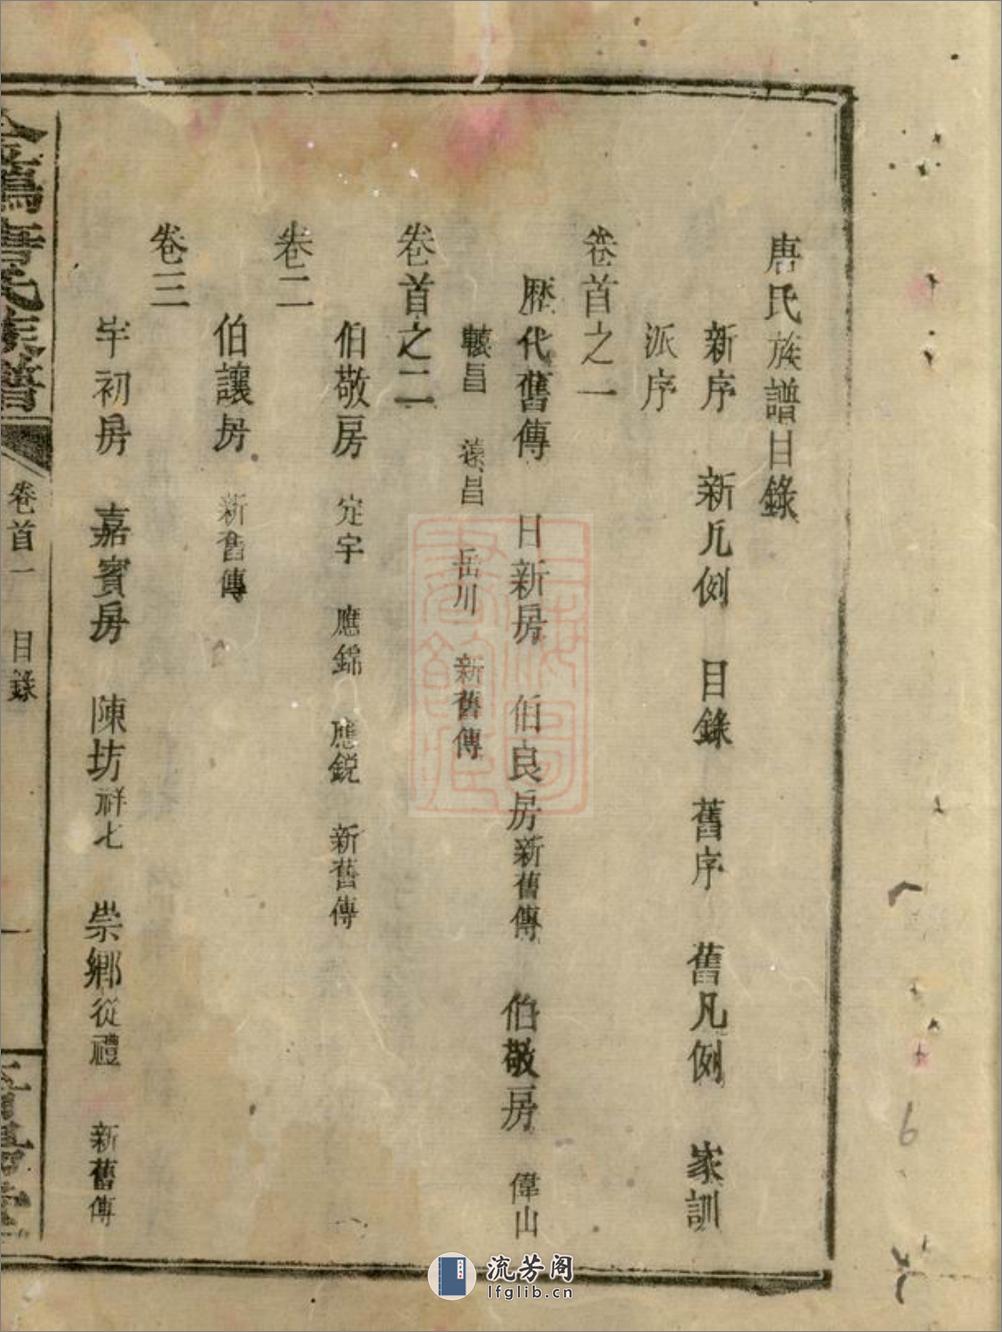 唐氏族譜目錄
新序 新凡例 目錄 舊序 舊凡例 家訓
派序
卷首之一
歷代舊傳 日新房 伯良房 新舊傳 伯敬房 偉山
昌 昌 岳川 新舊傳
卷首之二
伯敬房 定宇 應錦 應銳 新舊傳
卷二
伯讓房 新舊傳
卷三
初房 嘉賓房 陳坊 祥七 崇鄉 從禮 新舊傳
唐氏族譜
卷首一 目錄
一
6
流芳阁
lfglib.cn